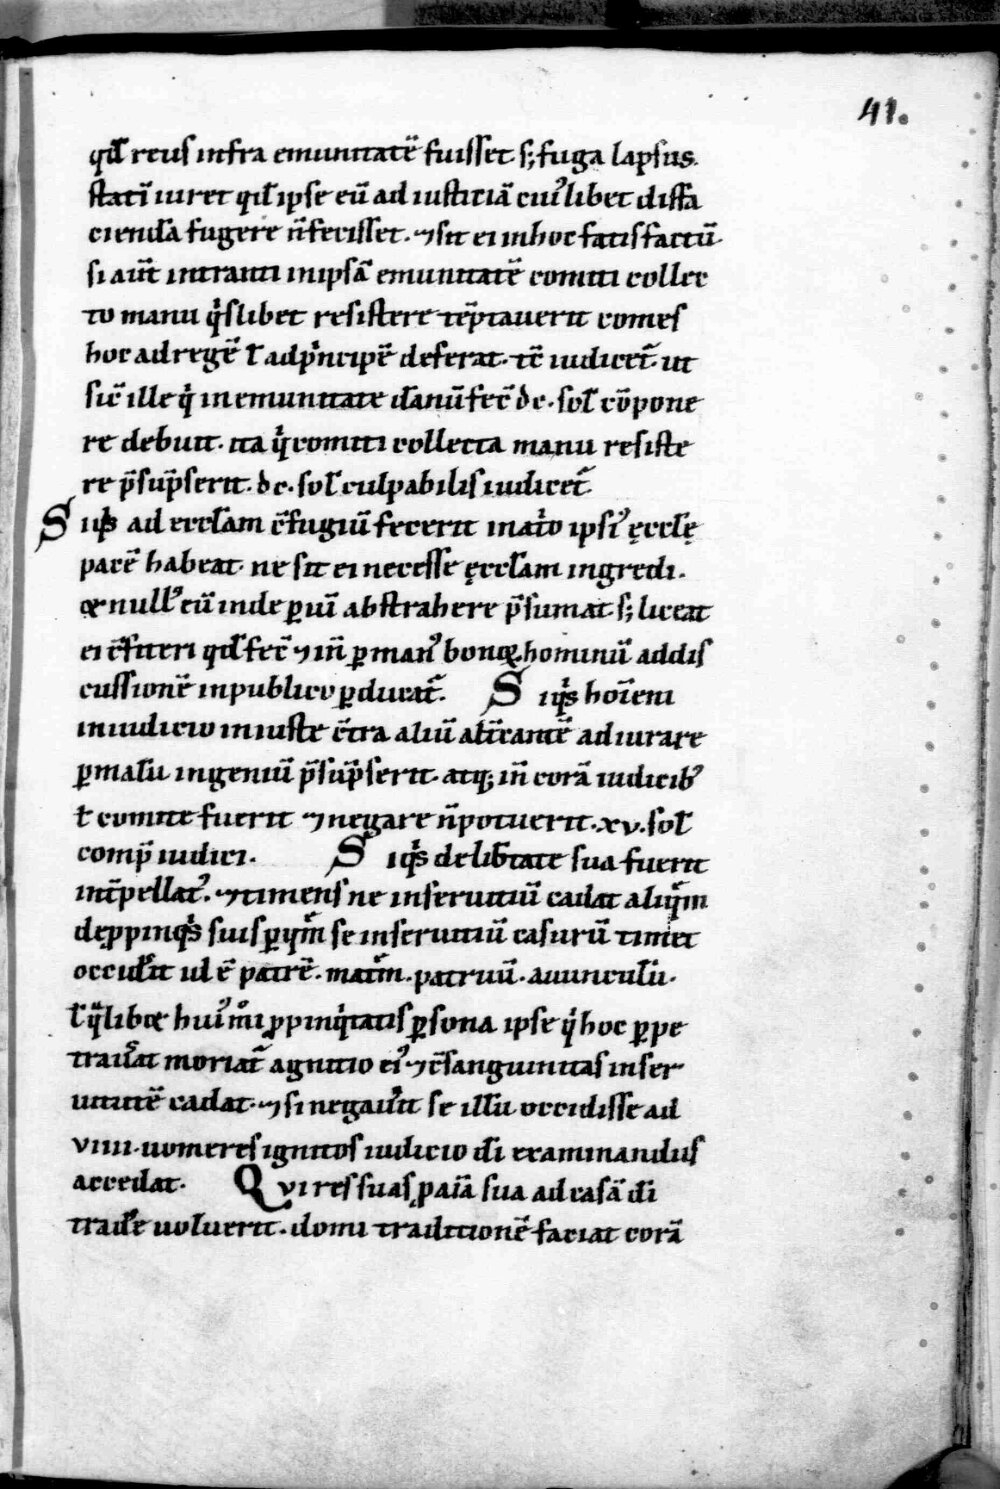 41.
qđ reus infra emunitatē fuisset. s; fuga lapsus.
statī iuret qđ ipse eū ad iusticiā cuiꝰlibet diffa
cienda fugere n̄ fecisset. ⁊ sit ei in hoc satisfactū.
si aūt intranti in ipsā emunitatē comiti collec
to manu qͥslibet resistere tēptauerit comes
hoc ad regē ł ad pͥncipē deferat. tc̄ iudicet̄. ut
sic̄ ille qͥ in emunitate dānū fec̄ dc. sol̄ cōpone
re debuit. ita qͥ comiti collecta manu resiste
re p̄sūpserit. dc. sol̄ culpabilis iudicet̄.
Siqͥs ad eccl̄am c̄fugiū fecerit in atͥo ipsiꝰ ęccl̄ę
pacē habeat. ne sit ei necesse ęccl̄am ingredi.
& nullꝰ eū inde ꝑ uī abstrahere p̄sumat. s; liceat
ei c̄fiteri qđ fec̄ ⁊ in̄ ꝑ manꝰ bonoꝝ hominū ad dis
cussionē in publico ꝑducat̄. Siqͥs hoīem
in iudicio iniuste c̄tra aliū altc̄antē adiurare
ꝑ malū ingeniū p̄sūpserit. atq; in̄ corā iudicibꝰ
ł comite fuerit ⁊ negare n̄ potuerit. xv. sol̄
comp̄ iudici. Siqͥs de lib̄tate sua fuerit
int̄pellatꝰ. ⁊ timens ne in seruitiū cadat aliqͫm
de ꝓpinqͥs suis ꝑ qͫm se in seruitiū casurū timet
occid̄it ul ē patrē. mat̄m. patruū. auunculū.
ł qͣlib& huiꝰmͦi ꝓpinqͥtatis ꝑsona ipse qͥ hoc ꝑpe
trau̓at moriat̄ agnitio eiꝰ ⁊ c̄sanguinitas in ser
uitutē cadat. ⁊ si negau̓it se illū occidisse ad
viiii. uomeres ignitos iudicio dī examinandus
accedat. Qui res suas ꝓ aīa sua ad casā dī
trad̓e uoluerit. domi traditionē faciat corā